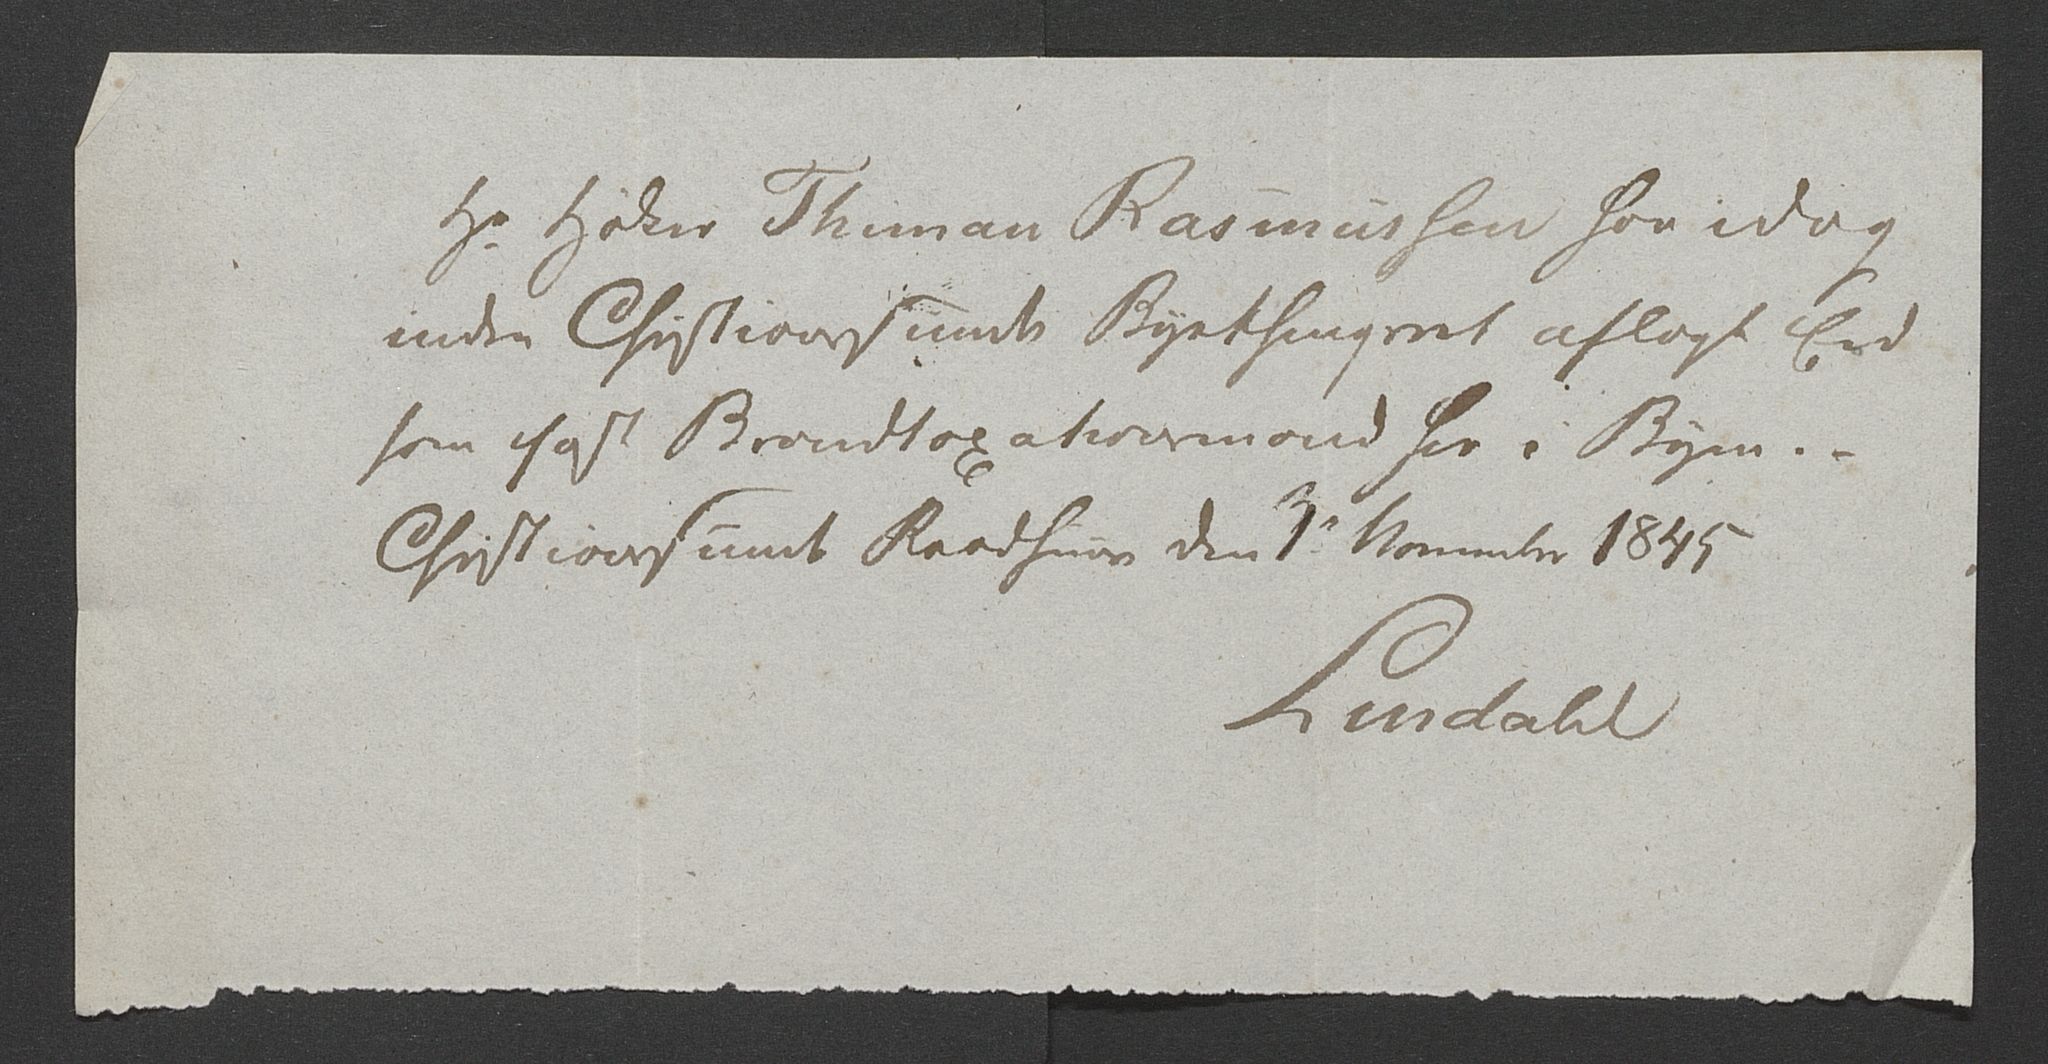 Hr. Höker Thiman Rasmussen har idag
inden Christianssunds Byethingsret aflagt Eed
som fast Brandtaxationsmand her i Byen.-
Christianssunds Raadhuus den 3e November 1845
Lindahl